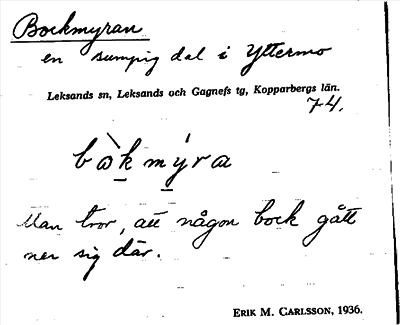 Bockmyran
en sumpig dal i Yttermo
Leksands sn, Leksands och Gagnefs tg, Kopparbergs län.
74.
bò̠k mý̠ra
Man tror, att någon bock gått
ner sig där.
ERIK M. CARLSSON, 1936.